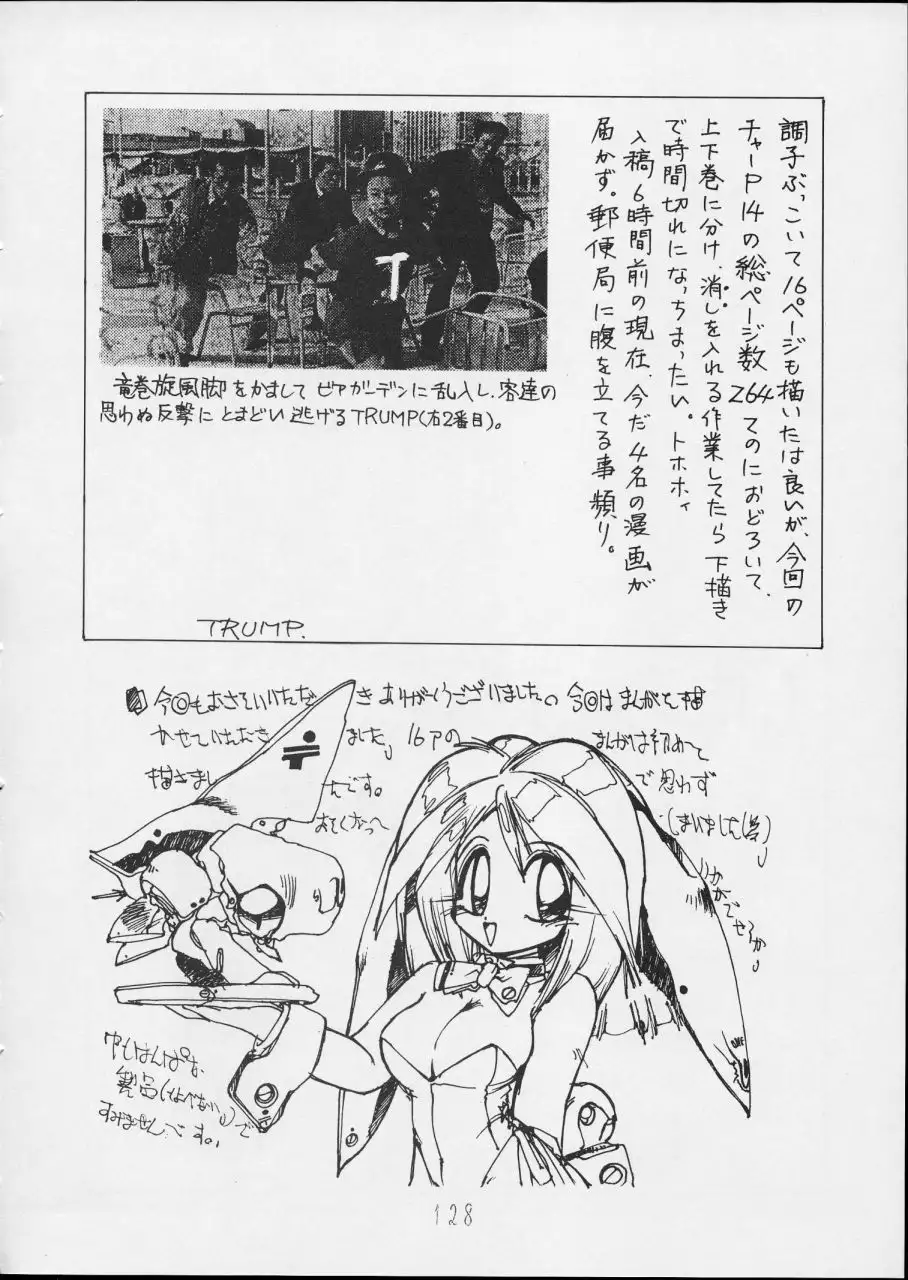 調子ぶっこいて16ページも描いたは良いが、今回の
チャーP14の総ページ数264てのにおどろいて、
上下巻に分け、消しを入れる作業してたら下描き
で時間切れになっちまったい。トホホィ
入稿6時間前の現在、今だ4名の漫画が
届かず。郵便局に腹を立てる事頻り。
T
竜巻旋風脚をかましてビアガーデンに乱入し、客達の
思わぬ反撃にとまどい逃げるTRUMP(右2番目)。
TRUMP.
今回もおさそいいただきありがとうございました。今回はまんがを描
かせていただきました。16Pの まんがは初めて
描きまし たです。 で思わず
おそくなって しまいました(笑)
すみませんです。
128